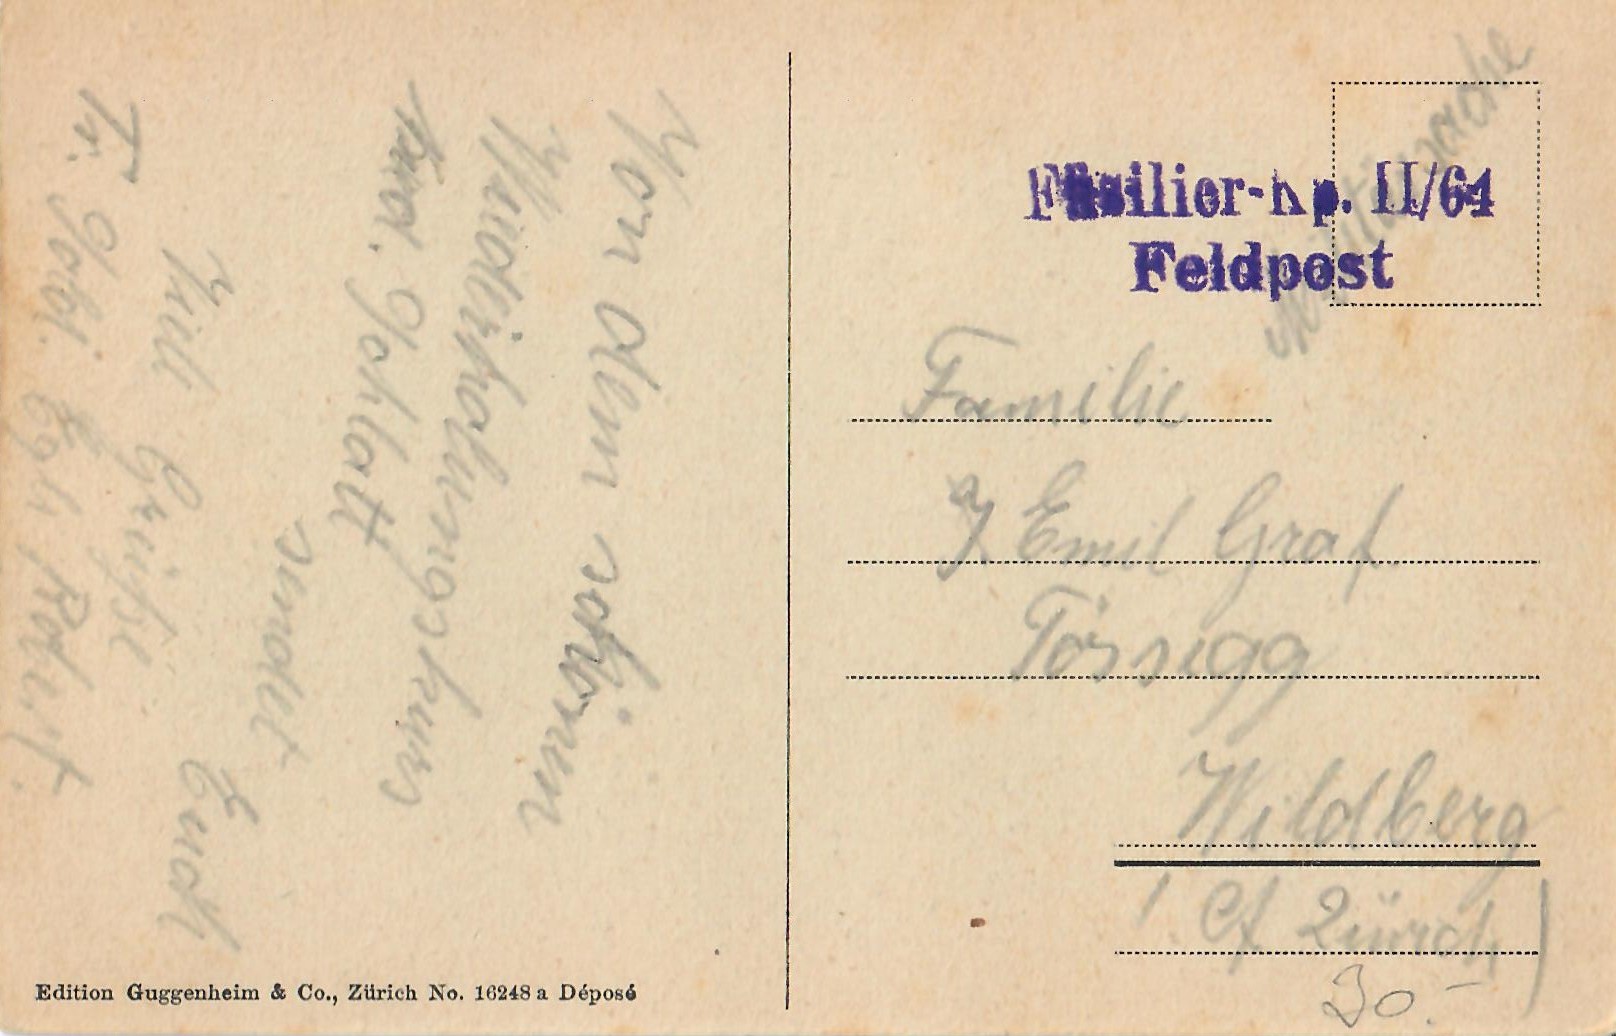 Von dem schönen
Wiederholungskurs
sendet Euch
Viele Grüsse
Edition Guggenheim & Co., Zürich No. 16248 a Déposé
Militärsache
Füsilier-Kp. II/64
Feldpost
Familie
Emil Graf
Tössegg
Wildberg
(Ct Zürich)
30.-